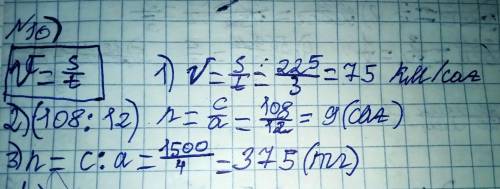 №16)
V = s/t 1) V = s/t = 225/3 = 75 км/саг
2) (108:12) n = c/a = 108/12 = 9 (саг)
3) n = c : a = 1500/4 = 375 (тг)